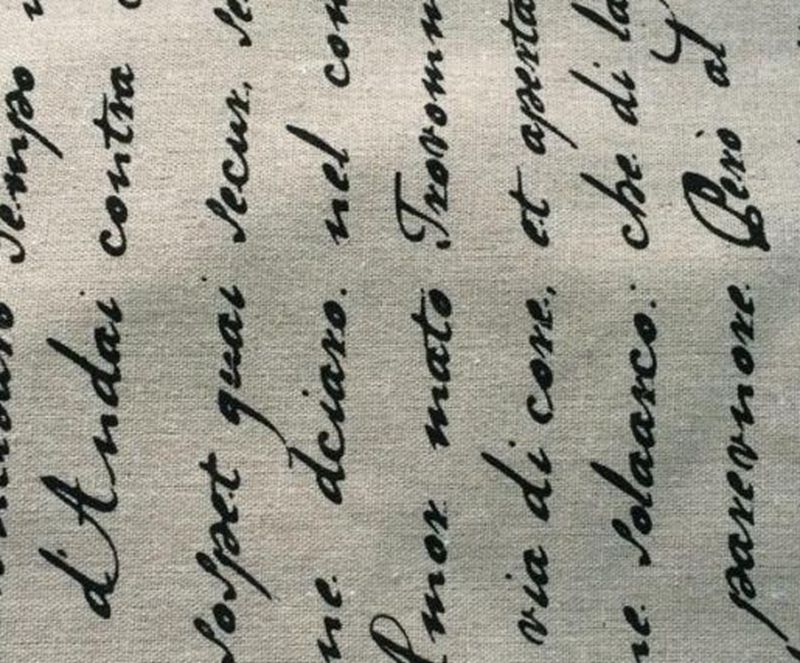 tempo
d'Andai contra
sospet quai secur. se
ne. dciaro. nel con
Amor mato Trovomm
via di core, et aperta
ne solaarco: che di la
parevnore. Però al